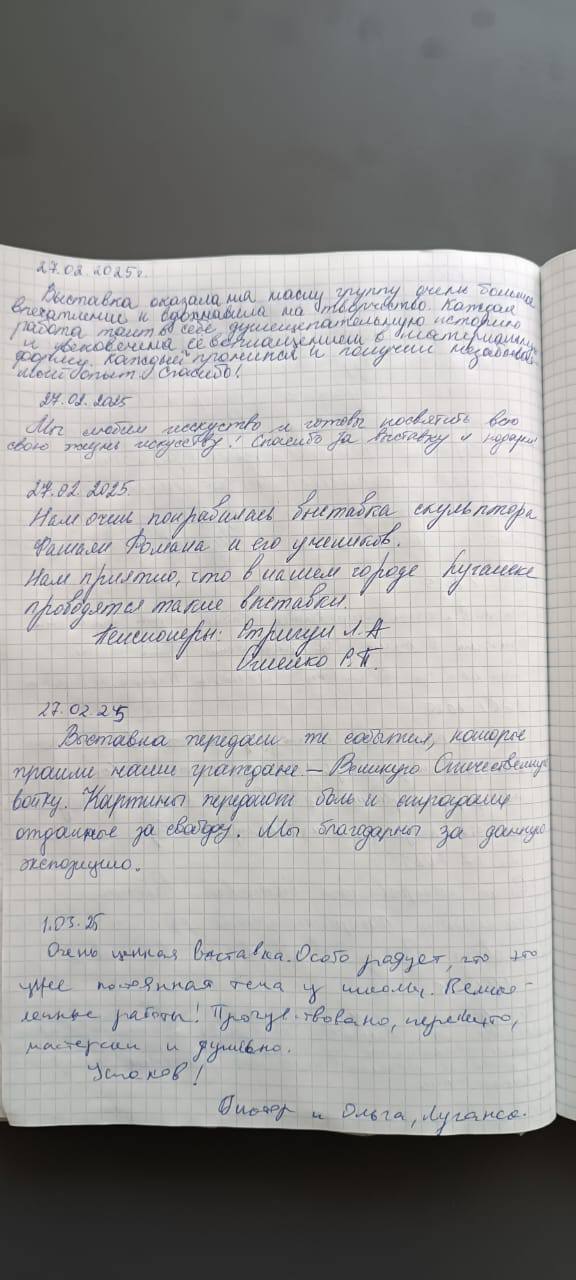 27.02.2025г.
Выставка оказала на нашу группу очень большое
впечатление и вдохнавила на творчество. Каждая
работа таит в себе душещепательную историю
и увековечена её воплащением в материальную
форму. Каждой прониклся и получил незабывае-
мый опыт. Спасибо!
27.02.2025
Мы любим исскуство и готовы посвятить всю
свою жизнь искусству! Спасибо за выставку и
27.02.2025.
Нам очень понравилась выставка скульптора
Романа и его учеников.
Нам приятно, что в нашем городе Луганске
проводятся такие выставки.
Пенсионеры: Стригун Л.А
Р.П.
27.02.25
Выставка передаёт те события, которые
прошли наши граждане – Великую Отечественную
войну. Картины передают боль и страдания
отданные за свободу. Мы благодарны за данную
экспозицию.
1.03.25
Очень ценная выставка. Особо радует, что это
уже постоянная тема у школы. Велико-
лепные работы! Прочувствовано, пережито,
мастерски и душевно.
Успехов!
и Ольга, Луганск.